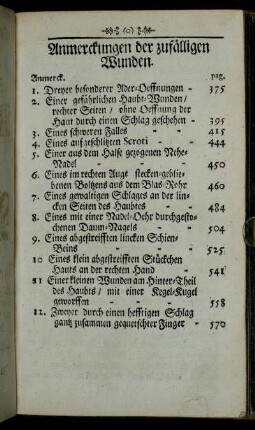 (o)
Anmerckungen der zufälligen
Wunden.
Anmerck. pag.
1. Dreyer besonderer Ader-Oeffnungen - 375
2. Einer gefährlichen Haubt-Wunden/
rechter Seiten / ohne Oeffnung der
Haut durch einen Schlag geschehen - 395
3. Eines schweren Falles - - 415
4. Eines aufgeschlitzten Scroti - - 444
5. Einer aus dem Halse gezogenen Nehe-
Nadel - - - 450
6. Eines im rechten Auge stecken-geblie-
benen Boltzens aus dem Blas-Rohr 460
7. Eines gewaltigen Schlages an der lin-
cken Seiten des Haubtes - - 484
8. Eines mit einer Nadel-Oehr durchgesto-
chenen Daum-Nagels - - 504
9. Eines abgestreifften lincken Schien-
Beins - - - 525
10 Eines klein abgestreifften Stückchen
Hauts an der rechten Hand - 541
11 Einer kleinen Wunden am Hinter-Theil
des Haubts / mit einer Kegel-Kugel
geworffen - - - 558
12. Zweyer durch einen hefftigen Schlag
gantz zusammen gequetschter Finger - 570